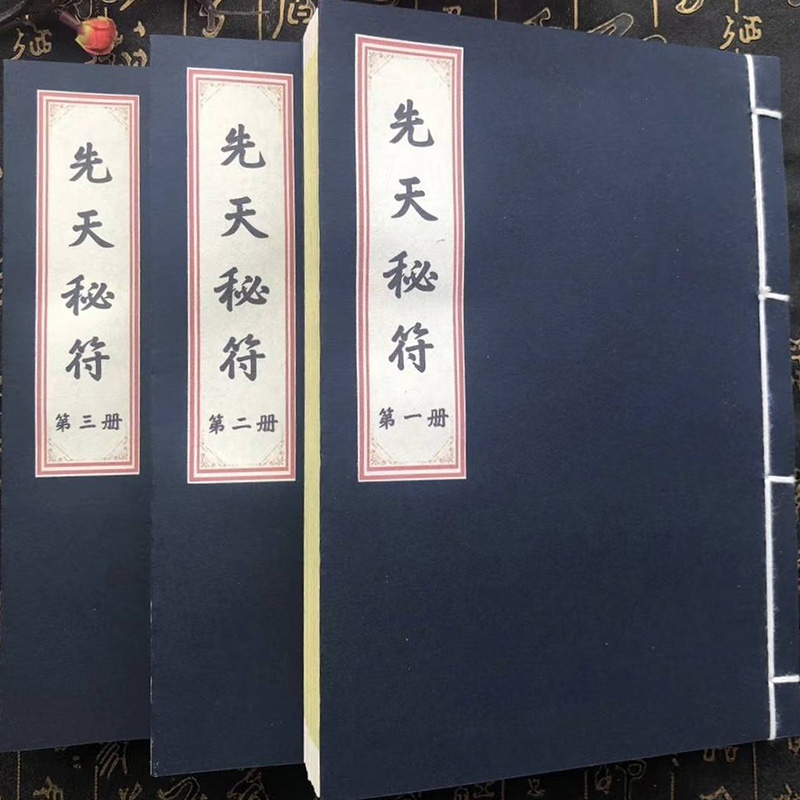 先天秘符
第一册
先天秘符
第二册
先天秘符
第三册